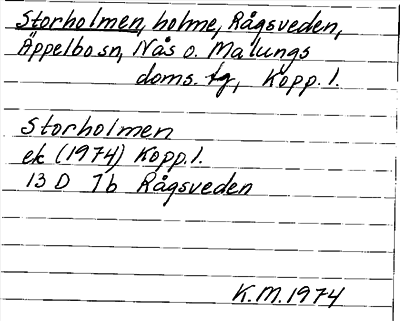 Storholmen, holme, Rågsveden,
Äppelbo sn, Nås o. Malungs
doms. tg, Kopp. l.
Storholmen
ek (1974) Kopp. l.
13 D 7b Rågsveden
K.M. 1974